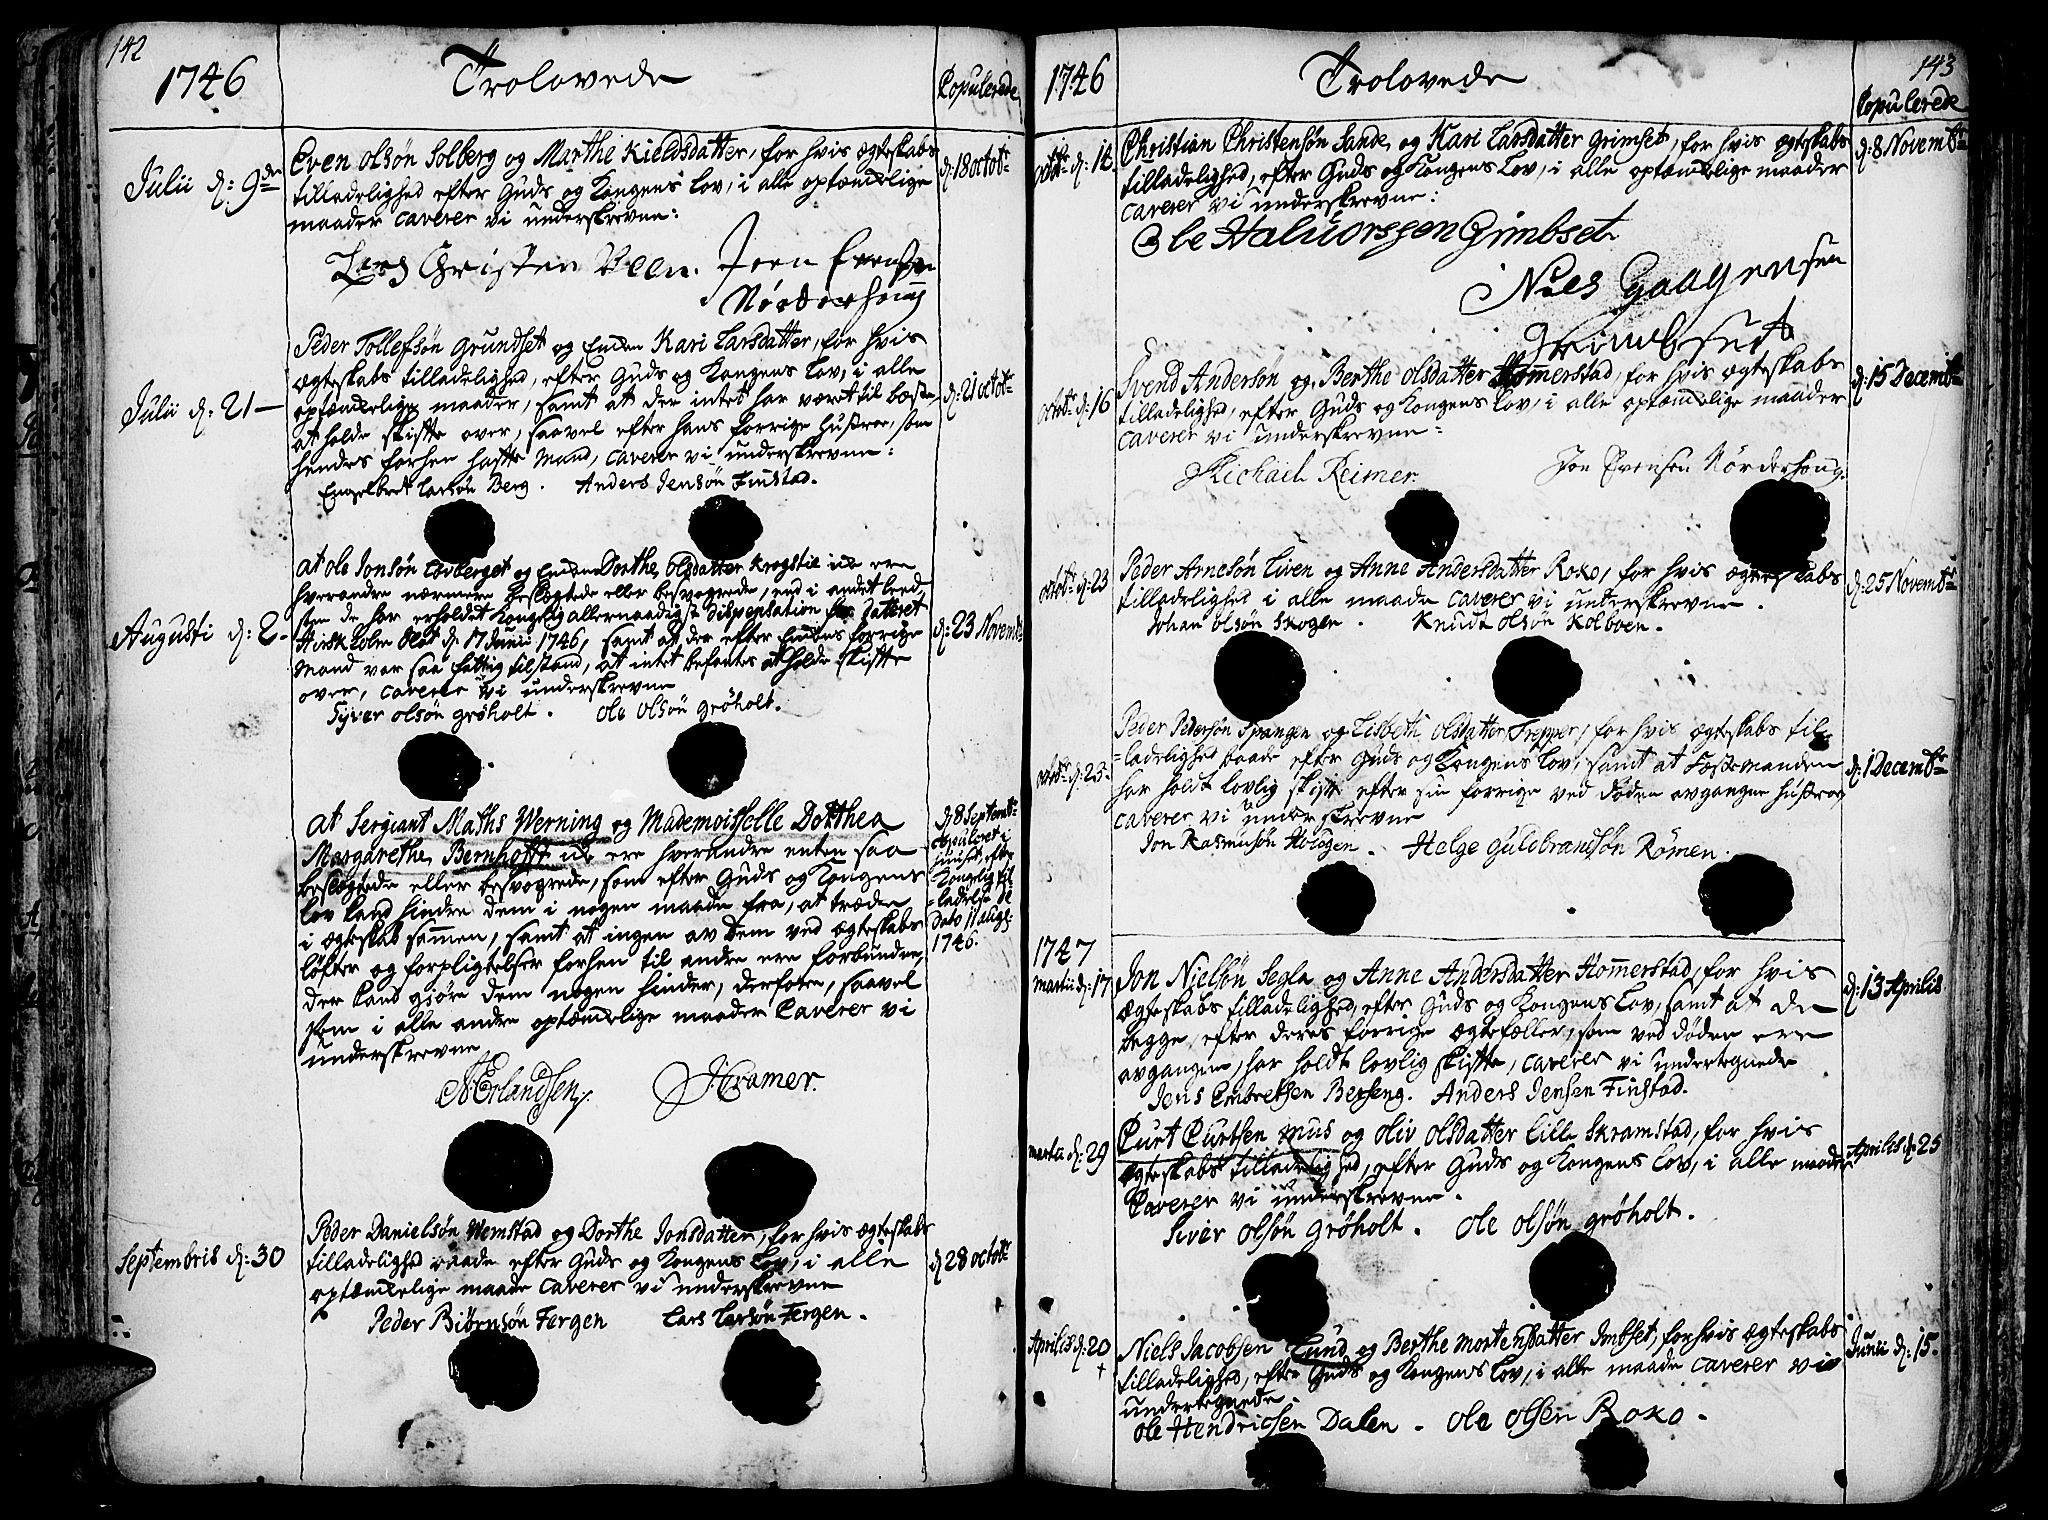 142
1746
Trolovede
Copulerede
Julii d: 9de
Even Olsøn Solberg og Marthe Kieldsdatter, for hvis ægteskabs
tilladelighed efter Guds og Kongens Lov, i alle optænkelige
maader caverer vi underskrevne:
d: 18 octobr:
Lars Christensen Veen. Joen Evensen
Nørderhoug
Julii d: 21
Peder Tollefsøn Grundset og Enken Kari Larsdatter, for hvis
ægteskabs tilladelighed, efter Guds og Kongens Lov, i alle
optænkelige maader, samt at der intet har været til beste
at holde skifte over, saavel efter hans forrige Hustroe, som
hendes forhen hafte Mand, caverer vi underskrevne:
d: 21 octobr:
Engelbret Larsøn Berg. Anders Jensøn Finstad.
Augusti d: 2
at Ole Jonsøn Lovberget og Enken Dorthe Olsdatter Krogstie ick ere
hverandre nærmere beslægtede eller besvogrede, end i andet leed,
som de har erholdet Kongelig allernaadigst Dispensation for Dateret
Hirskholm Slot d: 17 Junii 1746, samt at der efter Enkens forrige
Mand var saa fattig tilstand, at intet befantes at holde skifte
over, caverer vi underskrevne
d: 23 Novembr
Syver Olsøn Grøholt. Ole Olsøn Grøholt.
at Sergiant Maths Werning og Mademoisselle Dotthea
Margarethe Bernhoft ick ere hverandre enten saa
beslægtede eller besvogrede, som efter Guds og Kongens
Lov kand hindre dem i nogen maade fra, at træde
i ægteskab sammen, samt at ingen av dem ved ægteskabs
løfter og forpligtelser forhen til andre ere forbundne,
der kand giøre dem nogen hinder, derfore, saavel
som i alle andre optænkelige maader Caverer vi
underskrevne
d 8 Septembr:
copuleret i
huuset efter
Kongelig til-
ladelse de
Dato 11 aug:
1746.
N Erlandsen, J Cramer.
Septembris d: 30
Peder Danielsøn Wemstad og Dorthe Jonsdatter, for hvis ægteskabs
tilladelighed baade efter Guds og Kongens Lov, i alle
optænkelige maade caverer vi underskrevne
d 28 octobr
Peder Biørnsøn Fergen Lars Larsøn Fergen.
143
1746
Trolovede
Copulerede
octobr d: 12
Christian Christensøn Sande, og Kari Larsdatter Grimset, for hvis ægteskabs
tilladelighed, efter Guds og Kongens Lov, i alle optænkelige maader
caverer vi underskrevne:
d: 8 Novembr
Ole Haluorssen Grimbset
Niels Gaagensen
Grimbset
octobr d: 16
Svend Andersøn og Berthe Olsdatter Hommerstad, for hvis ægteskabs
tilladelighed, efter Guds og Kongens Lov, i alle optænkelige maader
caverer vi underskrevne:
d: 15 Decembr
Michael Reimer. Jon Evensen Nørderhoug.
octobr d: 23
Peder Arnesøn Lien og Anne Andersdatter Roko, for hvis ægteskabs
tilladelighed i alle maade caverer vi underskrevne.
d: 25 Novembr
Johan Olsøn Skogen. Knudt Olsøn Kolboen.
octobr d: 23
Peder Pedersøn Spangen og Lisbeth Olsdatter Trepper, for hvis ægteskabs til-
-ladelighed baade efter Guds og Kongens Lov, samt at Festemanden
har holdt lovlig skifte efter sin forrige ved døden avgangne hustroe
caverer vi underskrevne
d: 1 Decembr
Jon Rasmusøn Hologen. Helge Guldbrandsøn Rømen.
1747
martii d: 17
Jon Nielsøn Segla og Anne Andersdatter Hommerstad, for hvis
ægteskabs tilladelighed, efter Guds og Kongens Lov, samt at de
begge, efter deres forrige ægtefæller, som ved døden ere
avgangne, har holdt lovlig skifte, caverer vi undertegnede
d: 13 Aprilis
Jens Embretsen Berseng. Anders Jensen Finstad.
martii d: 29
Curt Curtsen Mus og Oliv Olsdatter Lille Skramstad, for hvis
ægteskabs tilladelighed, efter Guds og Kongens Lov, i alle maader
Caverer vi underskrevne.
Aprilis d: 25
Siver Olsøn Grøholt. Ole Olsøn Grøholt.
Aprilis d: 20
Niels Jacobsen Lund og Berthe Mortensdatter Imbset, for hvis ægteskabs
tilladelighed, efter Guds og Kongens Lov, i alle maade caverer vi
undertegnede.
Junii d: 15.
Ole Hendricsen Dalen. Ole Olsen Roko.